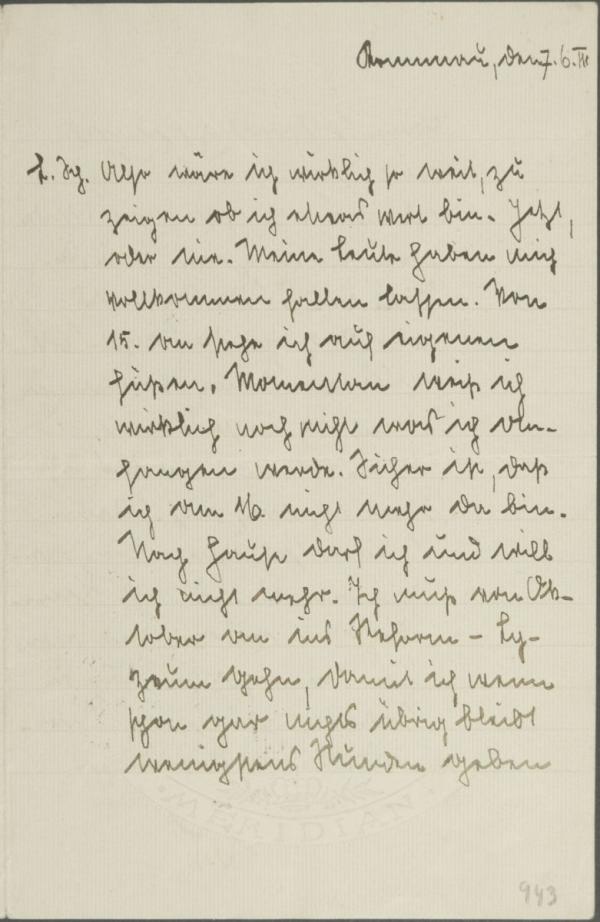 den 7. 6. III
L. Sch. Also wäre ich wirklich so weit, zu
zeigen ob ich etwas wert bin. Jetzt,
oder nie. Meine Leute haben mich
vollkommen fallen lassen. Von
15. an stehe ich auf eigenen
Füßen. Momentan weiß ich
wirklich noch nicht was ich an-
fangen werde. Sicher ist, daß
ich am 16. nicht mehr da bin.
Nach Hause darf ich und will
ich nicht mehr. Ich muß von Ok-
tober an ins Reform - Ly-
zeum gehn, damit ich, wenn
schon gar nichts übrig bleibt
wenigstens Stunden geben
MERIDIAN
943